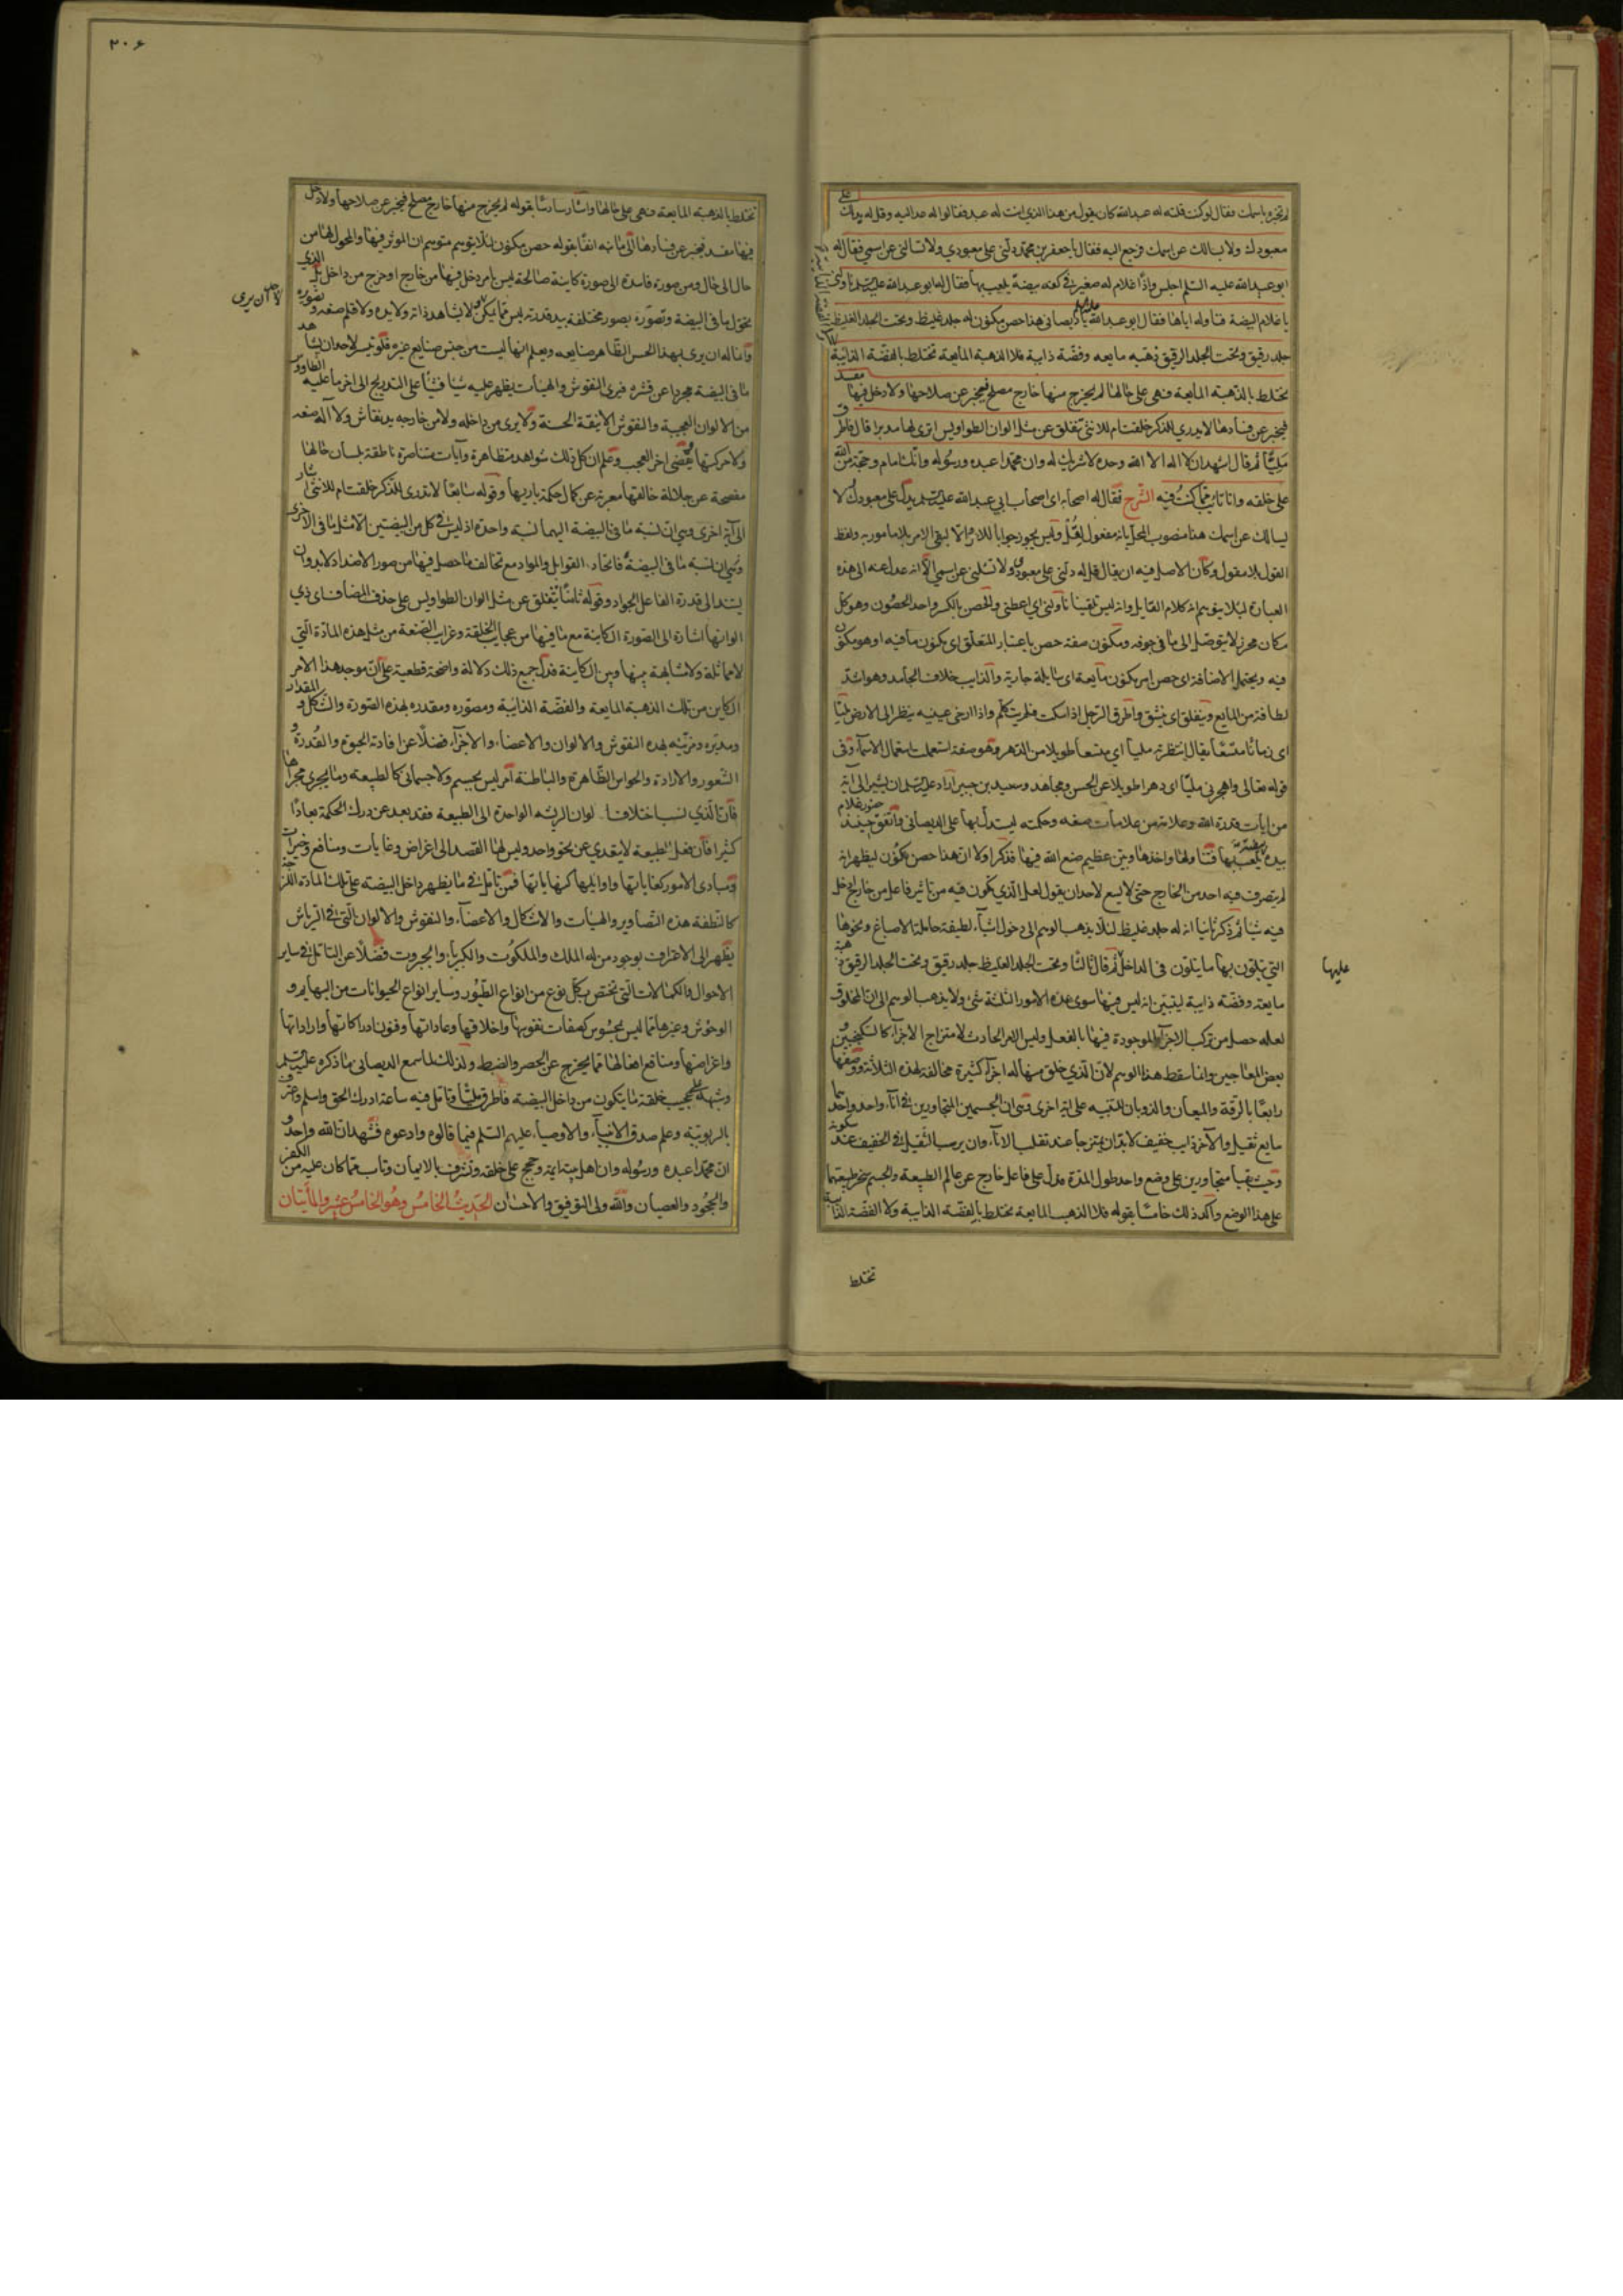 لم تخبره باسمك فقال لو كنت قلت له عبد الله كان يقول من هذا الذي انت له عبد فقالوا له عد اليه وقل له يدلك على
معبودك ولا يسالك عن اسمك فرجع اليه فقال يا جعفر بن محمد دلني على معبودي ولا تسالني عن اسمي فقال له
ابو عبد الله عليه السلم اجلس واذا غلام له صغير في كفه بيضة يلعب بها فقال له ابو عبد الله ناولني
يا غلام البيضة فناوله اياها فقال ابو عبد الله يا ديصاني هذا حصن مكنون له جلد غليظ وتحت الجلد الغليظ
جلد رقيق وتحت الجلد الرقيق ذهبه مايعه وفضة ذايبة فلا الذهبة المايعة تختلط بالفضة الذائبة
تختلط بالذهبة المايعة فهي على حالها لم يخرج منها خارج مصلح فيخبر عن صلاحها ولا دخل فيها مفسد
فيخبر عن فسادها لا يدري للذكر خلقت ام للانثى تنفلق عن مثل الوان الطواويس اترى لها مدبرا قال فاطرق
مليّا ثم قال اشهد ان لا اله الا الله وحده لا شريك له وان محمدا عبده ورسوله وانك امام وحجة من الله
على خلقه وانا تائب مما كنت فيه الشرح فقال له اصحابه اى اصحاب ابي عبد الله يدلك على معبودك ولا
يسالك عن اسمك هنا منصوب المحل بانه مفعول لقُل وليس بجواب للامر والا لبقى الامر بلا مامور به ولفظ
القول بلا مقول وكان الاصل فيه ان يقال قل له دلني على معبودى ولا تسلني عن اسمي الا انه عدل عنه الى هذه
العبارة لئلا يتوهم انه كلام القايل وانه ليس تلقينا ناولني اي اعطني والحصن بالكسر واحد الحصون وهو كل
مكان محرز لا يتوصل الى ما في جوفه ومكنون صفة حصن باعتبار المتعلق اى مكنون ما فيه او هو مكنون
فيه ويحتمل الاضافة اى حصن امر مكنون مآيعة اى سايلة جارية والذايب خلاف الجامد وهو اشد
لطافة من المايع وتنفلق اى تنشق واطرق الرجل اذا سكت فلم يتكلم واذا ارخى عينيه ينظر الى الارض مليا
اى زمانا متسعا يقال انتظرته مليا اي متسعا طويلا من الدهر وهو صفة استعملت استعمال الاسماء وفى
قوله تعالى واهجرني مليا اى دهرا طويلا عن الحسن ومجاهد وسعيد بن جبير اراد ان يشير الى آية
من ايات قدرة الله وعلامة من علامات صنعه وحكمته ليستدل بها على الديصاني واتفق حينئذ حضور غلام
بيده بيضة يلعب بها فتناولها واخذها وبين عظيم صنع الله فيها فذكر اولا ان هذا حصن مكنون ليظهر انه
لم يتصرف فيه احد من الخارج حتى لا يسع لاحد ان يقول لعل الذي تكون فيه من تاثير فاعل من خارج دخل
فيه شيئا ثم ذكر ثانيا انه له جلد غليظ لئلا يذهب الوهم الى دخول اشياء لطيفة حاملة الاصباغ ونحوها
التي يتلون بها ما يتلون فى الداخل ثم قال ثالثا وتحت الجلد الغليظ جلد رقيق وتحت الجلد الرقيق ذهبة
مايعة وفضة ذايبة ليتبين انه ليس فيها سوى هذه الامور الثلثة شئ ولا يذهب الوهم الى ان المخلوق
لعله حصل من تركب الاجزآء الموجودة فيها بالفعل وليس الامر الحادث الا امتزاج الاجزآء كالسكنجبين و
بعض المعاجين وانما سقط هذا الوهم لان الذي خلق منها له اجزآء كثيرة مخالفة لهذه الثلاثة ووصفها
رابعًا بالرقة والميعان والذوبان للتنبيه على اية اخرى وهى ان الجسمين المتجاورين في انآء واحد واحدهما
مايع ثقيل والآخر ذايب خفيف لا بد ان يمتزجا عند تقلب الانآء وان يرسب الثقيل في الخفيف عند سكونه
وحيث بقيا متجاورين على وضع واحد طول المدة فدل على فاعل خارج عن عالم الطبيعة والجسم سخر طبيعتهما
على هذا الوضع واكد ذلك خامسًا بقوله فلا الذهب المايعة تختلط بالفضة الذايبة ولا الفضة الذائبة
تختلط
عليها
٢٠٤
تختلط بالذهبة المايعة فهى على حالها واشار سادسًا بقوله لم يخرج منها خارج مصلح فيخبر عن صلاحها ولا دخل
فيها مفسد فيخبر عن فسادها الى ما نبه انفًا بقوله حصن مكنون لئلا يتوهم متوهم ان المؤثر فيها والمحول لها من
حال الى حال ومن صورة فاسدة الى صورة كاينة صالحة ليس بامر دخل فيها من خارج او خرج من داخل بل الذي
تحول ما في البيضة وتصوره بصور مختلفة بيد قدرته ليس مما يمكن ولا يشاهد ذاته ولا يده ولا قلم صنعه وتصويره
لاحد ان يرى
وانما له ان يرى بهذا الحس الظاهر صنايعه ويعلم انها ليست من جنس صنايع غيره فلو تيسر لاحد ان يشاهد
ما فى البيضة مجردا عن قشره فيرى النقوش والهيأت يظهر عليه شيئا فشيئا على التدريج الى اخر ما عليه الطاوس
من الالوان العجيبة والنقوش الانيقة الحسنة ولا يرى من داخله ولا من خارجه يد نقاش ولا آلة صنعه
ولا حركتها يقضى اخر العجب وعلم ان كل ذلك شواهد متظاهرة وآيات متناصرة ناطقة بلسان حالها
مفصحة عن جلالة خالقها معربة عن كمال حكمة باريها وقوله سابعًا لا تدرى للذكر خلقت ام للانثى اشار
الى آية اخرى وهي ان نسبة ما فى البيضة اليهما نسبة واحدة اذ ليس في كل من البيضتين الا مثل ما فى الاخرى
فاتحاد القوابل والمواد مع تخالف ما حصل فيها من صور الاضداد لا بد وان
يستند الى قدرة الفاعل الجواد وقوله ثامنًا تنفلق عن مثل الوان الطواويس على حذف المضاف اى ذي
الوانها اشارة الى الصورة الكاينة مع ما فيها من عجايب الخلقة وغرايب الصنعة من مثل هذه المادة التي
لا مماثلة ولا مشابهة بينها وبين الكاينة فدل جميع ذلك دلالة واضحة قطعية على ان موجد هذا الامر
الكاين من تلك الذهبة المايعة والفضة الذائبة ومصوره ومقدره بهذه الصورة والشكل والمقدار
ومدبره ومزينه بهذه النقوش والالوان والاعضاء والاجزآء فضلًا عن افادته الحيوة والقُدرة و
الشعور والارادة والحواس الظاهرة والباطنة امر ليس بجسم ولا جسمانى كالطبيعة وما يجرى مجراها
فان الذي نسب اختلاف الوان الريشة الواحدة الى الطبيعة فقد بعد عن درك الحكمة بعادًا
كثيرا فان فعل الطبيعة لا يتعدي عن نحو واحد وليس لها القصد الى اغراض وغايات ومنافع وخيرات
ومبادى الامور كغاياتها واوايلها كنهاياتها فمن تامل في ما يظهر داخل البيضة على تلك المادة اللزجة
كالنطفة هذه التصاوير والهيئات والاشكال والاعضآء والنقوش والالوان التي في الرياش
يضطر الى الاعتراف بوجود من له الملك والملكوت والكبريآء والجبروت فضلًا عن التامل في ساير
الاحوال والكمالات التي تختص بكل نوع من انواع الطيور وساير انواع الحيوانات من البهايم و
الوحوش وغيرها مما ليس بمحسوس كصفات نفوسها واخلاقها وعاداتها وفنون ادراكاتها واراداتها
واغراضها ومنافع افعالها مما يخرج عن الحصر والضبط ولذلك لما سمع الديصانى ما ذكره
ونبهه على عجيب خلقة ما يتكون من داخل البيضة فاطرق مليًّا وتامل فيه ساعة ادرك الحق واسلم واعترف
بالربوبية وعلم صدق الانبيآء والاوصيآء عليهم السلم فيما قالوه وادعوه فشهد ان الله واحد و
ان محمدًا عبده ورسوله وان اهل بيته ايمة وحجج على خلقه وتشرف بالايمان وتاب عما كان عليه من الكفر
والجحود والعصيان والله ولى التوفيق والاحسان الحديث الخامس وهو الخامس عشر والمأيتان